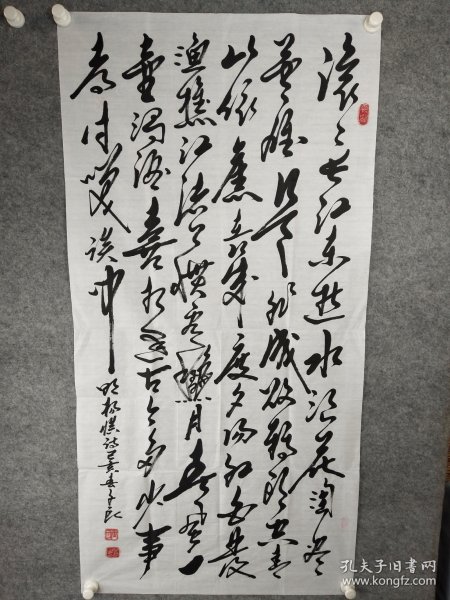 滚々长江东逝水浪花淘尽
英雄是非成败转头空青
山依旧在几度夕阳红白发
渔樵江渚上惯看秋月春风一
壶浊酒喜相逢古今多少事
都付笑谈中
明杨慎诗
孔夫子旧书网
book.kongfz.com